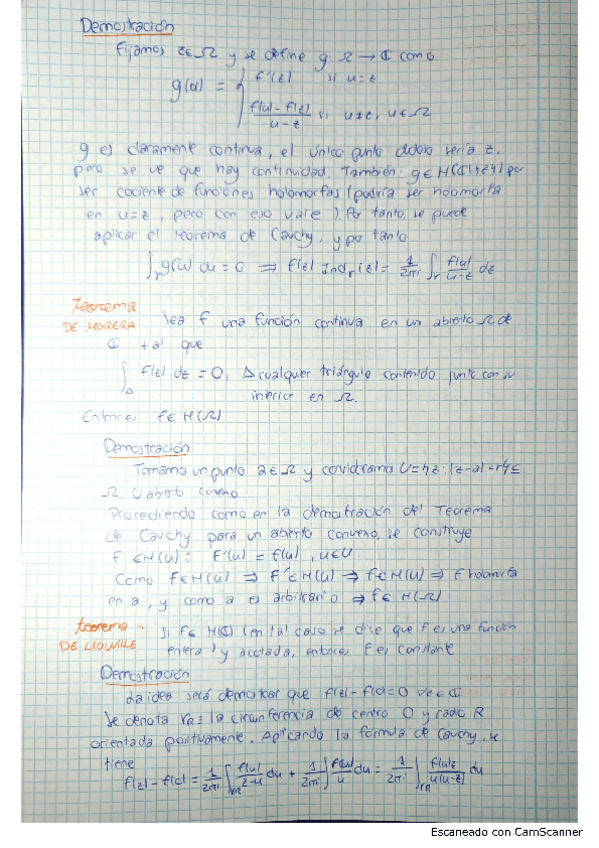 Demostración
Fijamos z∈Ω y se define g: Ω → ℂ como
g(u) = { f'(z) si u=z
f(u)-f(z)/u-z si u≠z, u∈Ω
g es claramente continua, el único punto dudoso sería z,
pero se ve que hay continuidad. También g∈H(ℂ\{z}) por
ser cociente de funciones holomorfas (podría ser holomorfa
en u=z, pero con eso vale). Por tanto, se puede
aplicar el teorema de Cauchy, y por tanto
∫_Γ g(u) du = 0 ⟹ f(z) Ind_Γ(z) = 1/2πi ∫_Γ f(u)/u-z dz
Teorema
DE MORERA
Sea f una función continua en un abierto Ω de
ℂ tal que
∫_Δ f(z) dz = 0, Δ cualquier triángulo contenido junto con su
interior en Ω.
Entonces f∈H(Ω)
Demostración
Tomamos un punto a∈Ω y consideramos U={z: |z-a|=r}⊆
Ω. U abierto convexo
Procediendo como en la demostración del Teorema
de Cauchy para un abierto convexo, se construye
F∈H(U): F'(u) = f(u), u∈U
Como F∈H(U) ⟹ F'∈H(U) ⟹ f∈H(U) ⟹ f holomorfa
en a, y como a es arbitrario ⟹ f∈H(Ω)
Teorema
DE LIOUVILLE
Si f∈H(ℂ) (en tal caso se dice que f es una función
entera) y acotada, entonces f es constante
Demostración
La idea será demostrar que f(z)-f(0)=0 ∀z∈ℂ
Se denota γR≡ la circunferencia de centro 0 y radio R
orientada positivamente. Aplicando la fórmula de Cauchy, se
tiene
f(z)-f(0) = 1/2πi ∫_γR f(u)/z-u du + 1/2πi ∫ f(u)/u du = 1/2πi ∫_γR f(u)z/u(u-z) du
Escaneado con CamScanner